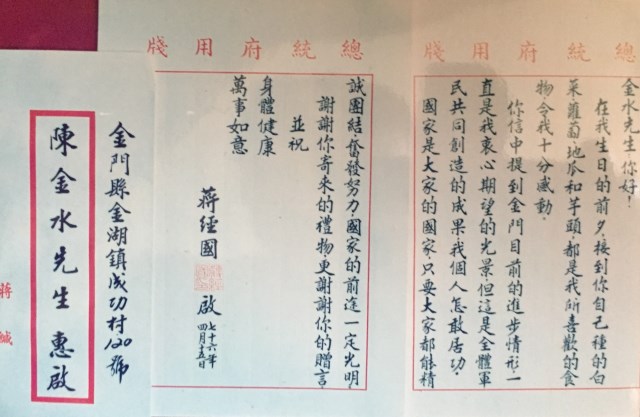 統府用牋
金水先生你好!
在我生日的前夕,接到你自己種的白
菜蘿蔔地瓜和芋頭,都是我所喜歡的食
物令我十分感動。
你信中提到金門目前的進步情形,一
直是我衷心期望的光景但這是全體軍
民共同創造的成果我個人怎敢居功。
國家是大家的國家,只要大家都能精
總統府用牋
誠團結,奮發努力,國家的前途一定光明。
謝謝你寄來的禮物,更謝謝你的贈言。
並祝
身體健康
萬事如意
蔣經國 啟
七十六年
四月十五日
金門縣金湖鎮成功村120號
陳金水先生 惠啟
蔣緘